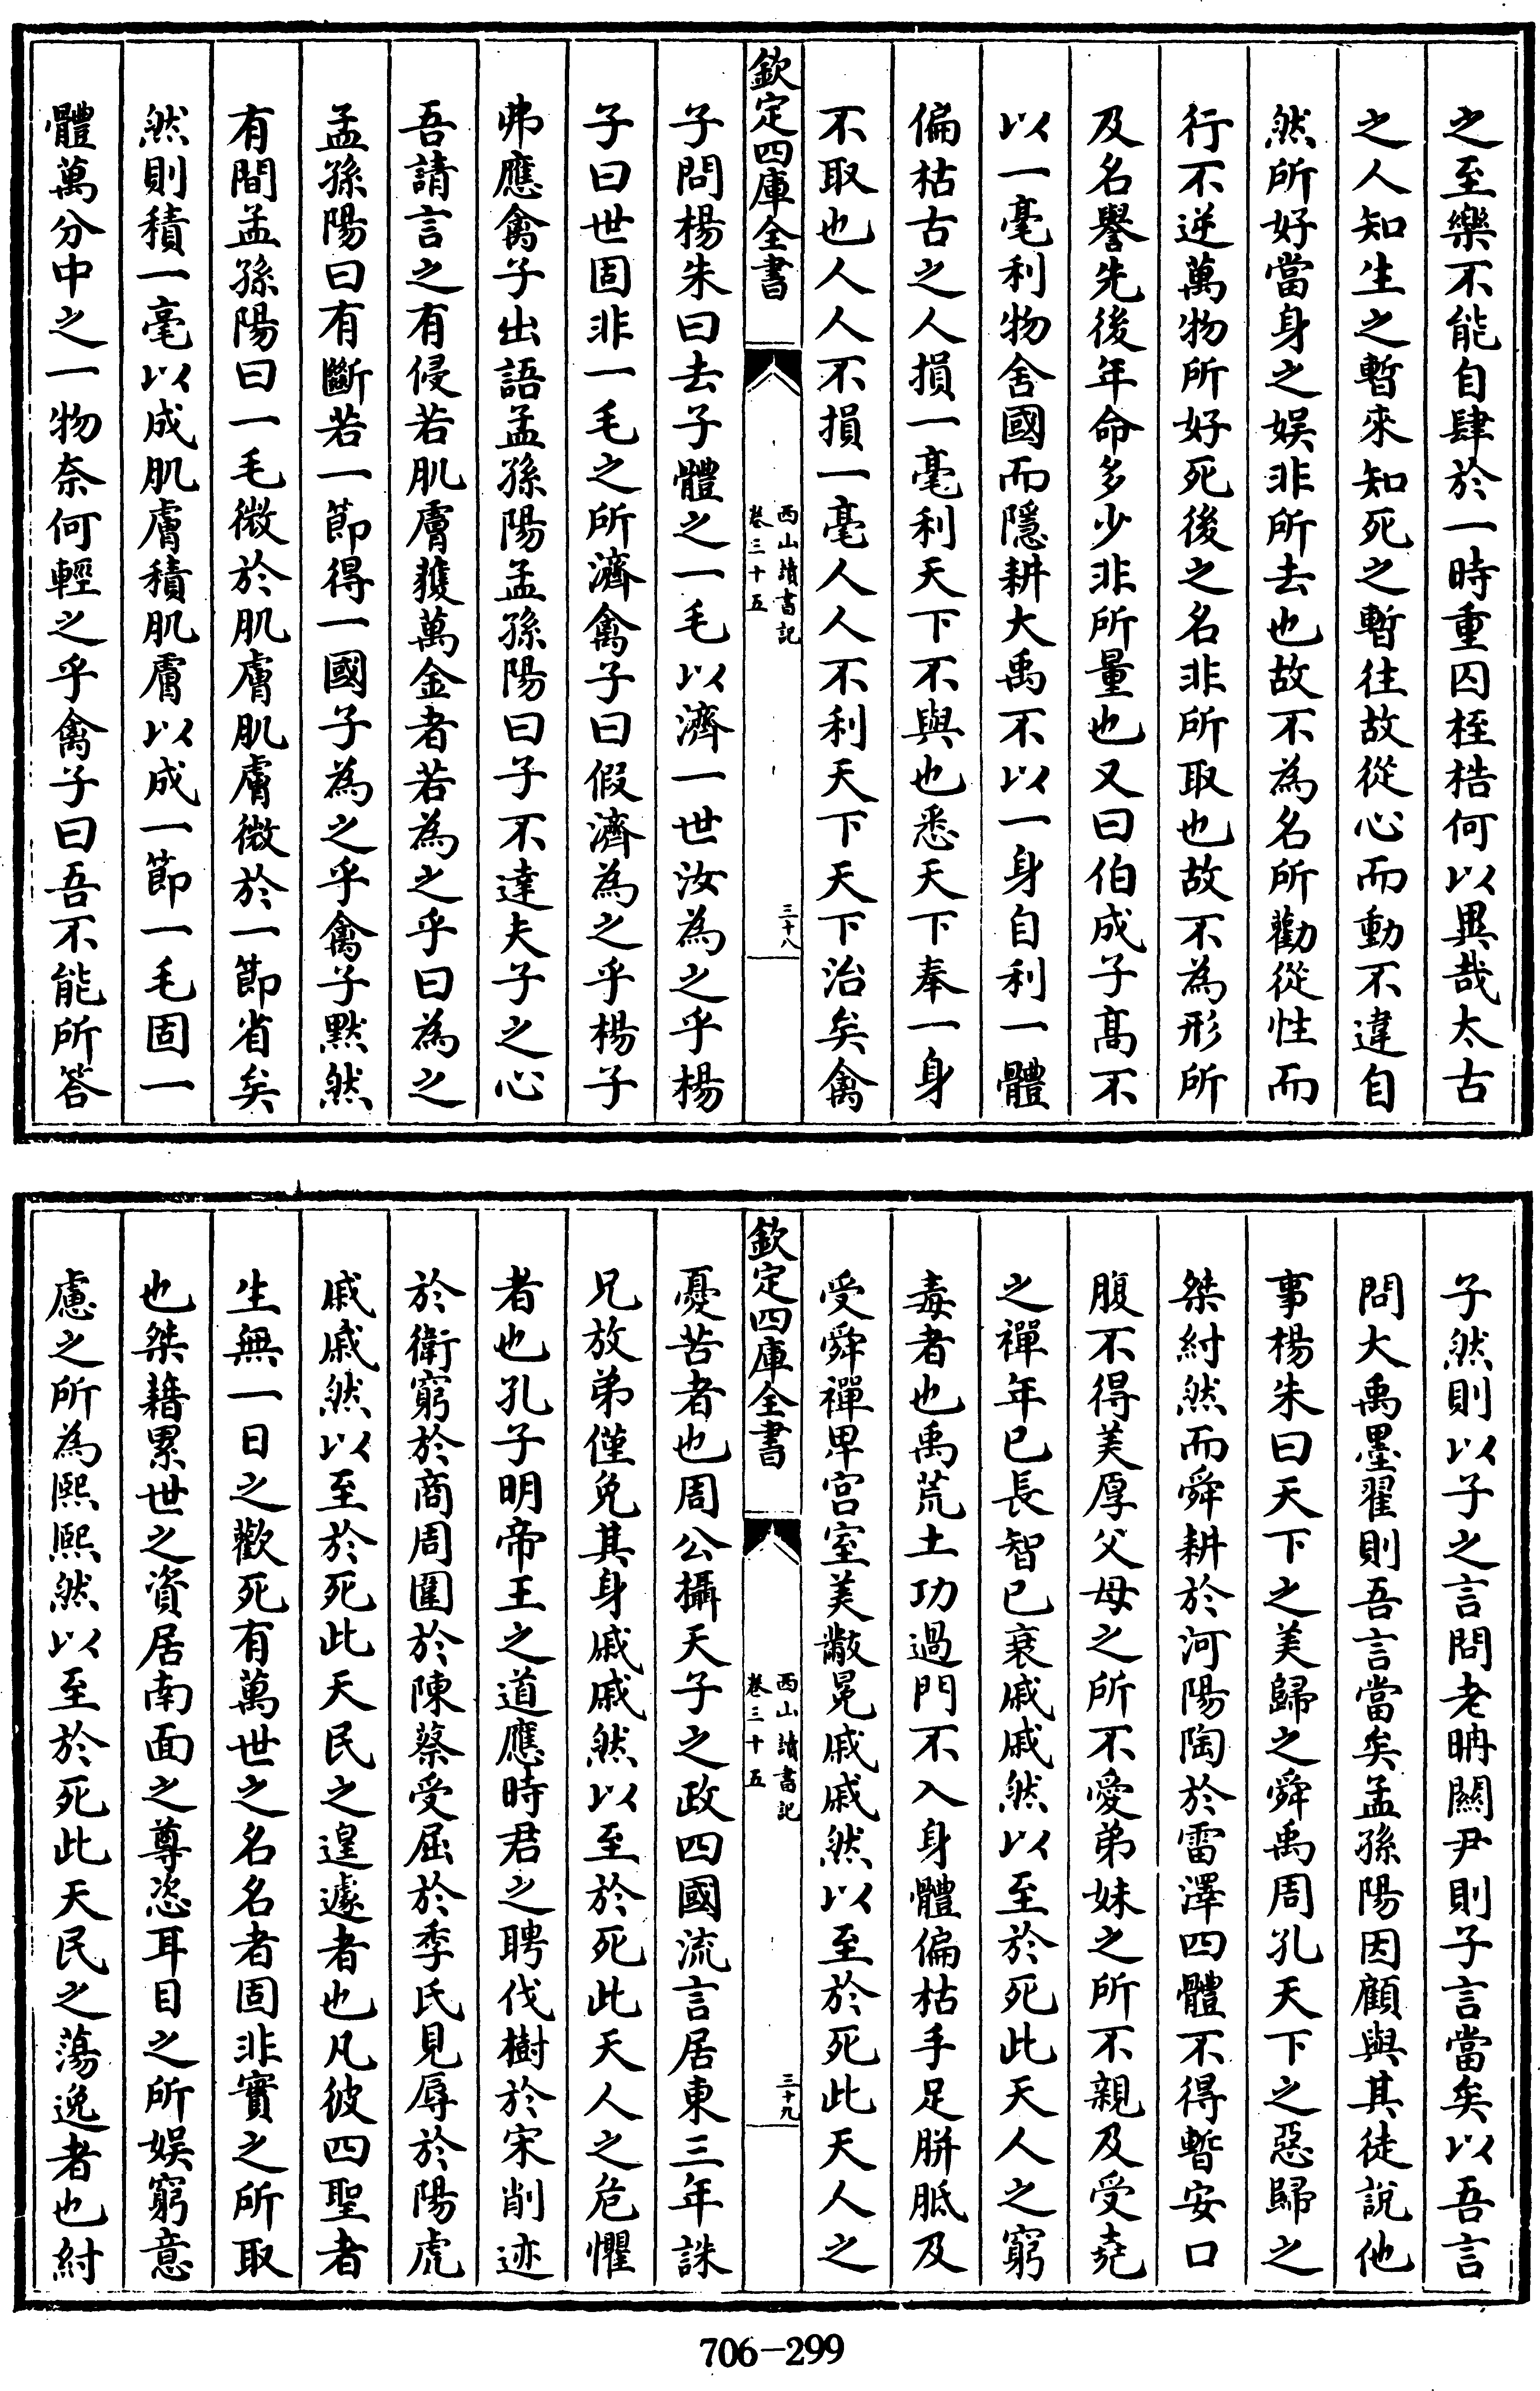 之至樂不能自肆於一時重囚桎梏何以異哉太古
之人知生之暫來知死之暫往故從心而動不違自
然所好當身之娛非所去也故不為名所勸從性而
行不逆萬物所好死後之名非所取也故不為形所
及名譽先後年命多少非所量也又曰伯成子髙不
以一毫利物舍國而隱耕大禹不以一身自利一體
偏枯古之人損一毫利天下不與也悉天下奉一身
不取也人人不損一毫人人不利天下天下治矣禽
欽定四庫全書
西山讀書記
卷三十五
三十八
子問楊朱曰去子體之一毛以濟一世汝為之乎楊
子曰世固非一毛之所濟禽子曰假濟為之乎楊子
弗應禽子出語孟孫陽孟孫陽曰子不達夫子之心
吾請言之有侵若肌膚獲萬金者若為之乎曰為之
孟孫陽曰有斷若一節得一國子為之乎禽子黙然
有間孟孫陽曰一毛微於肌膚肌膚微於一節省矣
然則積一毫以成肌膚積肌膚以成一節一毛固一
體萬分中之一物奈何輕之乎禽子曰吾不能所答
子然則以子之言問老聃關尹則子言當矣以吾言
問大禹墨翟則吾言當矣孟孫陽因顧與其徒說他
事楊朱曰天下之美歸之舜禹周孔天下之惡歸之
桀紂然而舜耕於河陽陶於雷澤四體不得暫安口
腹不得美厚父母之所不愛弟妹之所不親及受堯
之禪年已長智已衰戚戚然以至於死此天人之窮
毒者也禹荒土功過門不入身體偏枯手足胼胝及
受舜禪卑宮室美黻冕戚戚然以至於死此天人之
欽定四庫全書
西山讀書記
卷三十五
三十九
憂苦者也周公攝天子之政四國流言居東三年誅
兄放弟僅免其身戚戚然以至於死此天人之危懼
者也孔子明帝王之道應時君之聘伐樹於宋削迹
於衛窮於商周圍於陳蔡受屈於季氏見辱於陽虎
戚戚然以至於死此天民之遑遽者也凡彼四聖者
生無一日之歡死有萬世之名名者固非實之所取
也桀藉累世之資居南面之尊恣耳目之所娛窮意
慮之所為熙熙然以至於死此天民之蕩逸者也紂
706-299